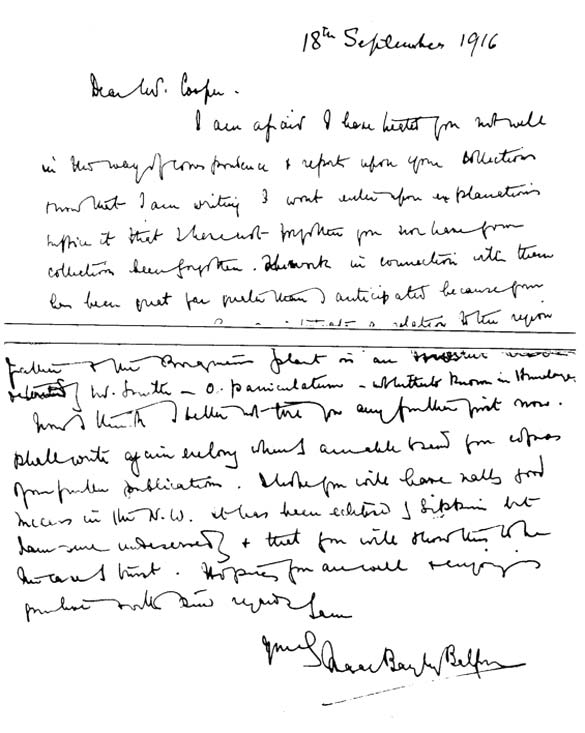 18th September 1916
Dear Mr. Cooper.
I am afraid I have treated you not well
in the way of correspondence & report upon your collections
now that I am writing I wont enter upon explanations
suffice it that I have not forgotten you nor have your
collections been forgotten. The work in connection with them
has been great far greater than I anticipated because your
relation to the region
& the plant is an
W. Smith — O. paniculatum — known in
now I think I better not tire you any further just now.
Shall write again ere long when I am able to send you copies
of your further publication. I hope you will have really good
success in the N.W. it has been by but
I am sure undeservedly & that you will show this to be
the case I trust. Hoping you are well & enjoying
your with kind regards I am
Yours
Isaac Bayley Balfour